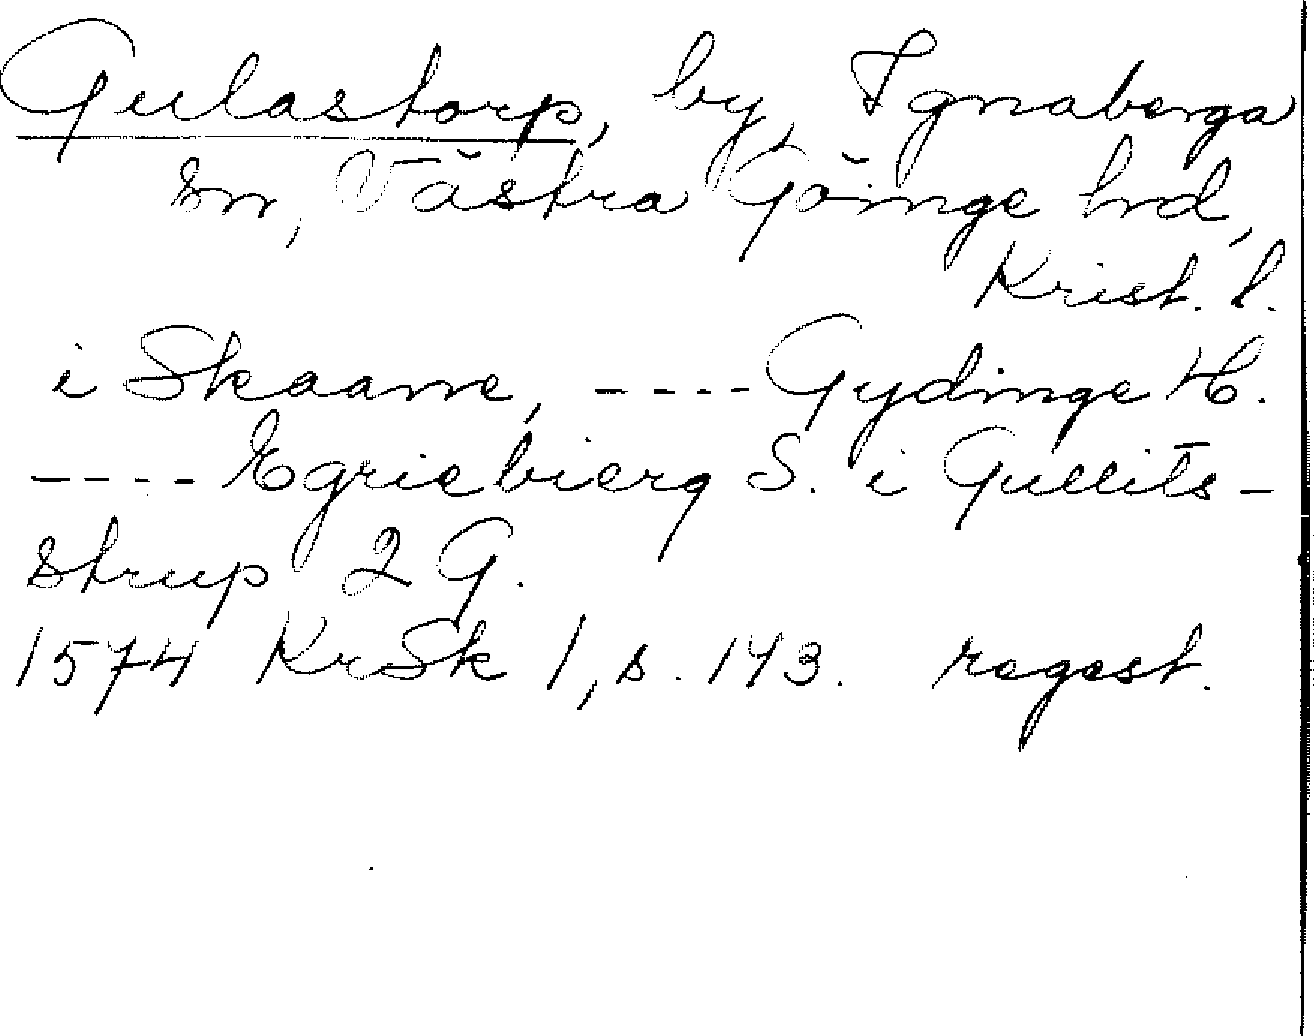 Gulastorp, by, Ignaberga
sn, Västra Göinge hrd,
Krist. l.
i Skaane, ---- Gydinge H.
---- Egriebierg S. i Gullits-
strup 2 G.
1574 KrSk 1, s. 143. regest.